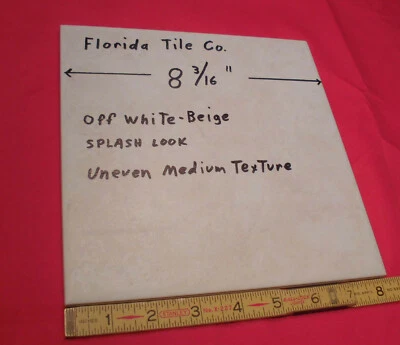 Florida Tile Co.
8 3/16 "
Off White-Beige
SPLASH LOOK
Uneven Medium Texture
1 2 3 4 5 6 7 8